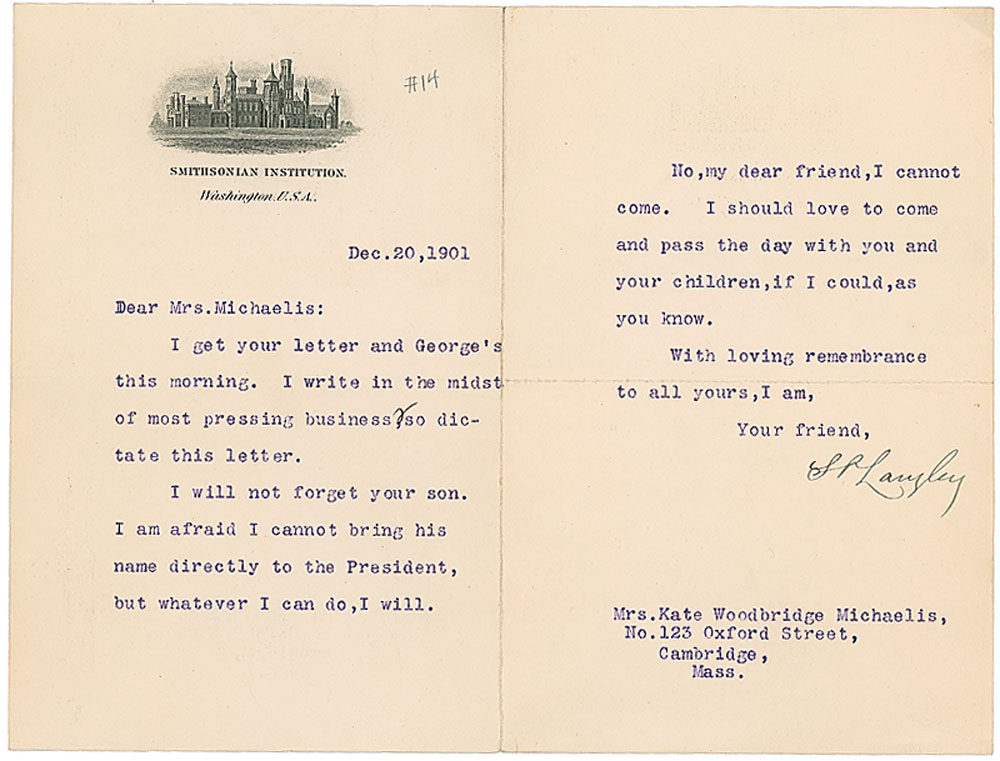 #14
SMITHSONIAN INSTITUTION.
Washington, U.S.A.
Dec.20,1901
Dear Mrs.Michaelis:
I get your letter and George's
this morning. I write in the midst
of most pressing business, so dic-
tate this letter.
I will not forget your son.
I am afraid I cannot bring his
name directly to the President,
but whatever I can do,I will.
No,my dear friend,I cannot
come. I should love to come
and pass the day with you and
your children,if I could,as
you know.
With loving remembrance
to all yours,I am,
Your friend,
S P Langley
Mrs.Kate Woodbridge Michaelis,
No.123 Oxford Street,
Cambridge,
Mass.